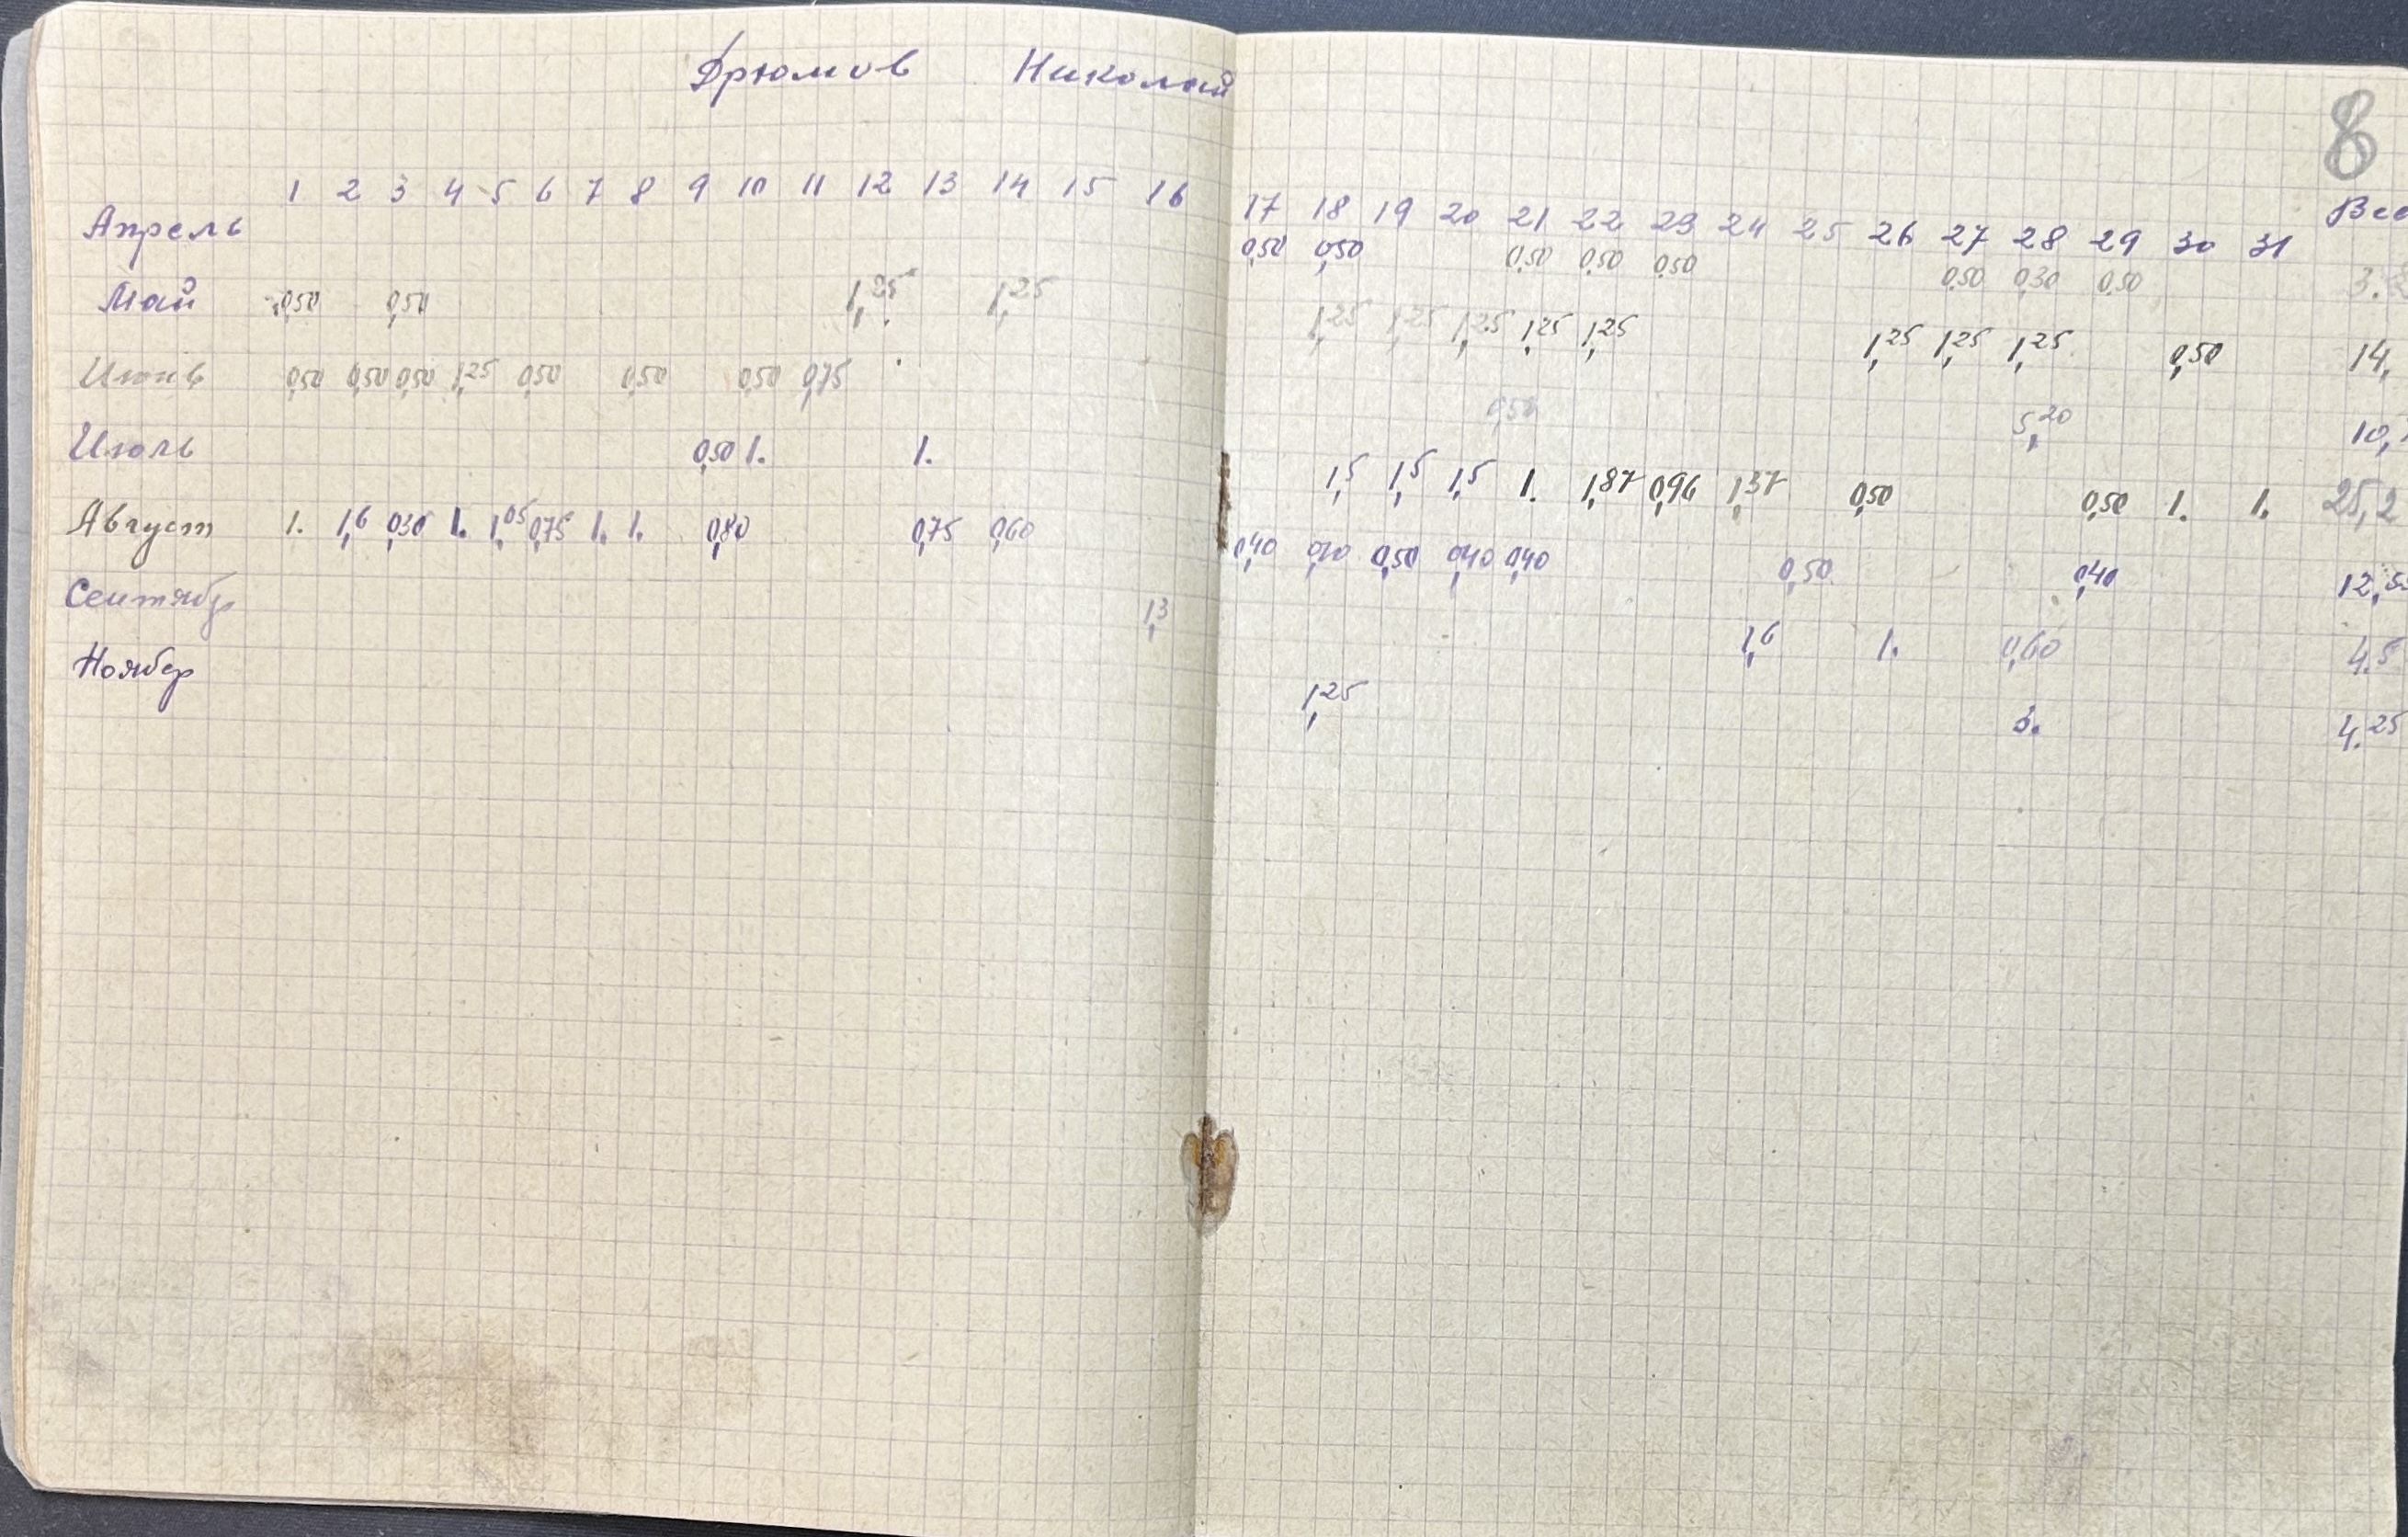 Дрюмов Николай
8
1 2 3 4 5 6 7 8 9 10 11 12 13 14 15 16 17 18 19 20 21 22 23 24 25 26 27 28 29 30 31
Апрель 0,50 0,50 0,50 0,50 0,50 0,50 0,30 0,50 3.
Май 0,50 0,50 1,25 1,25 1,25 1,25 1,25 1,25 1,25 1,25 1,25 1,25 0,50 14,
Июнь 0,50 0,50 0,50 1,25 0,50 0,50 0,50 0,75 0,50 5,20 10,
Июль 0,50 1. 1. 1,5 1,5 1,5 1. 1,87 0,96 1,37 0,50 0,50 1. 1. 25,2
Август 1. 1,6 0,30 1. 1,05 0,75 1. 1. 0,80 0,75 0,60 0,40 0,50 0,40 0,40 0,50 0,40 12,
Сентябр 1,3 1,6 1. 0,60 4.5
Ноябр 1,25 3. 4.25